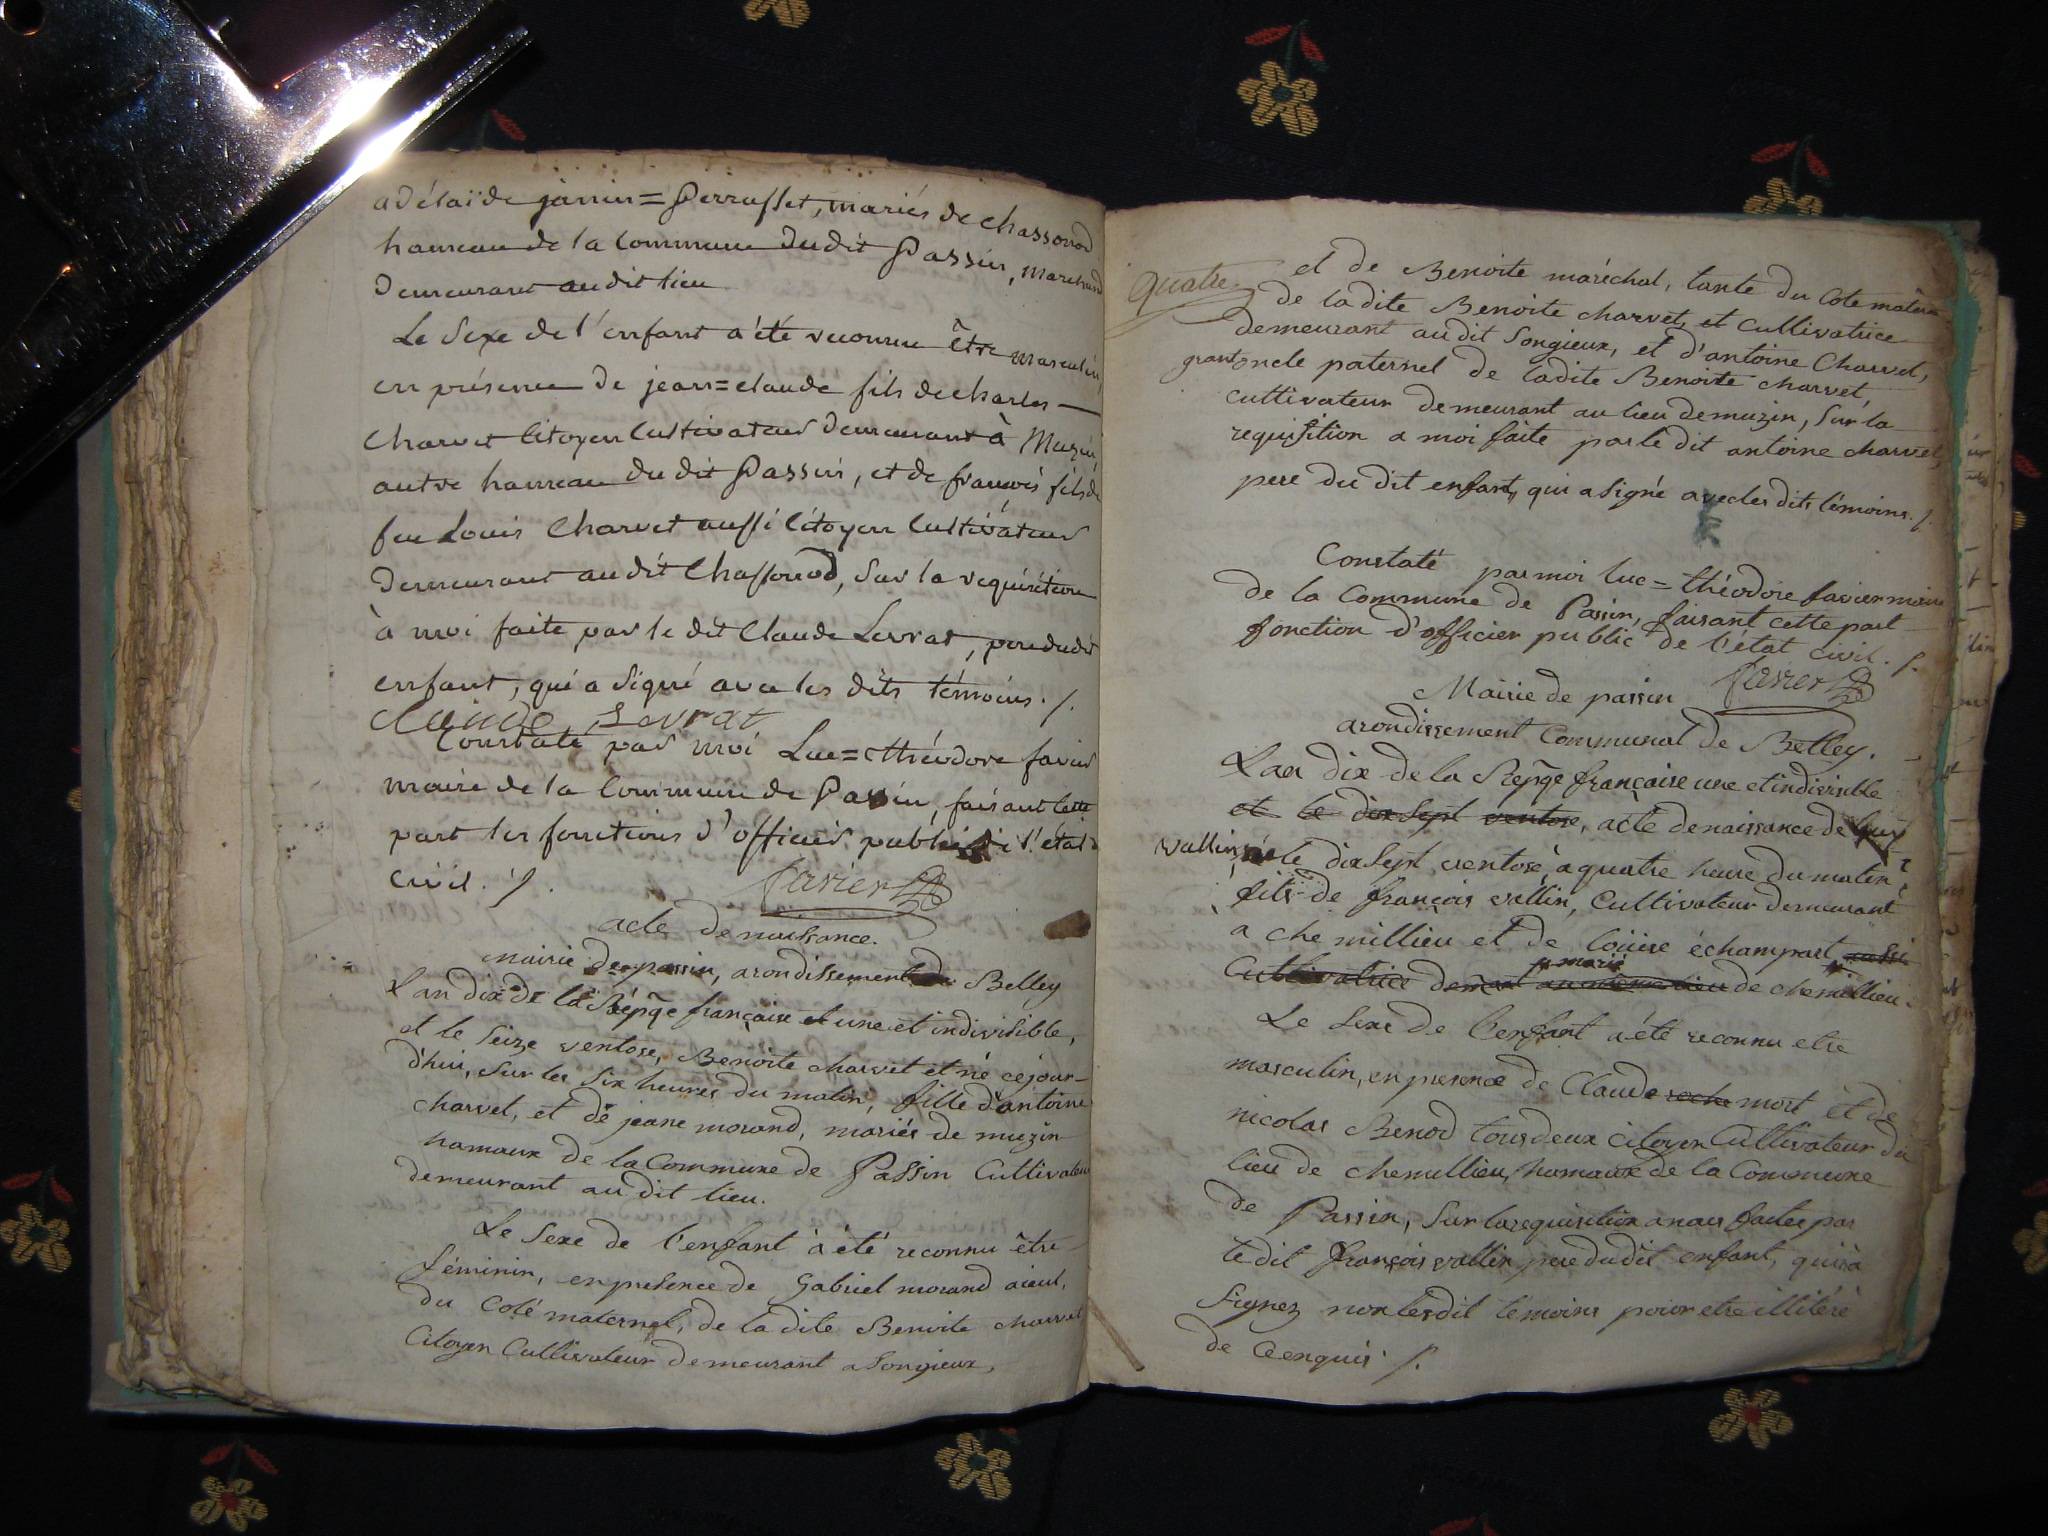 adélaïde janin=Perrasset, mariés de chassonod
hameau de la Commune du dit Passin, marchand
Demeurant audit lieu
Le Sexe de l'enfant a été reconnu être masculin,
en présence de jean=claude fils de charles
Charvet Citoyen Cultivateur Demeurant à Muzin,
autre hameau du dit Passin, et de françois fils de
feu Louis Charvet aussi Citoyen Cultivateur
Demeurant audit Chassonod, Sur la requisition
à moi faite par le dit Claude Levrat, pere dudit
enfant, qui a Signé avec les dits témoins ./.
Claude Levrat
Constaté par moi Luc=théodore favier
maire de la Commune de Passin, faisant cette
part les fonctions d'officier public de l'état
Civil ./.
favier
acte de naissance.
mairie de passin, arondissement de Belley
Lan dix de la Répqe française et une et indivisible,
et le Seize ventose, Benoite charvet et né cejour-
d'hui, Sur les Six heures du matin, fille d'antoine
charvet, et de jeane morand, mariés de muzin
hamaux de la Commune de Passin Cultivateur
demeurant au dit lieu.
Le Sexe de l'enfant à été reconnu être
féminin, en presence de Gabriel morand aieul,
du Coté maternel, de la dite Benoite charvet
Citoyen Cultivateur demeurant a Songieux,
Quatre
et de Benoite maréchal, tante du Cote matern
de la dite Benoite charvet, et Cultivatrice
demeurant audit Songieux, et d'antoine Charvet,
grant oncle paternel de ladite Benoite charvet,
Cultivateur demeurant au lieu de muzin, Sur la
requisition a moi faite par le dit antoine charvet,
pere du dit enfant, qui a Signé avec les dits témoins ./.
Constaté par moi luc=théodore favier maire
de la Commune de Passin, faisant cette part
fonction d'officier public de l'état civil ./.
favier
Mairie de passin
arondissement Communal de Belley.
Lan dix de la Répqe française une et indivisible
et le dix Sept ventose, acte de naissance de
vallin, né le dix Sept ventose, a quatre heure du matin,
fils de françois vallin, Cultivateur demeurant
a che millieu et de loüise échampart, aussi
marié
Cultivatrice demt au même lieu de chemillieu.
Le Sexe de l'enfant a été reconnu etre
masculin, en presence de Claude roche mort, et de
nicolas Benod tous deux Citoyen Cultivateur du
lieu de chemillieu, hamaux de la Commune
de Passin, Sur la requisition a nous faites par
le dit françois vallin pere du dit enfant, qui a
Signez non les dit témoins pour etre illitéré
de Ce enquis ./.